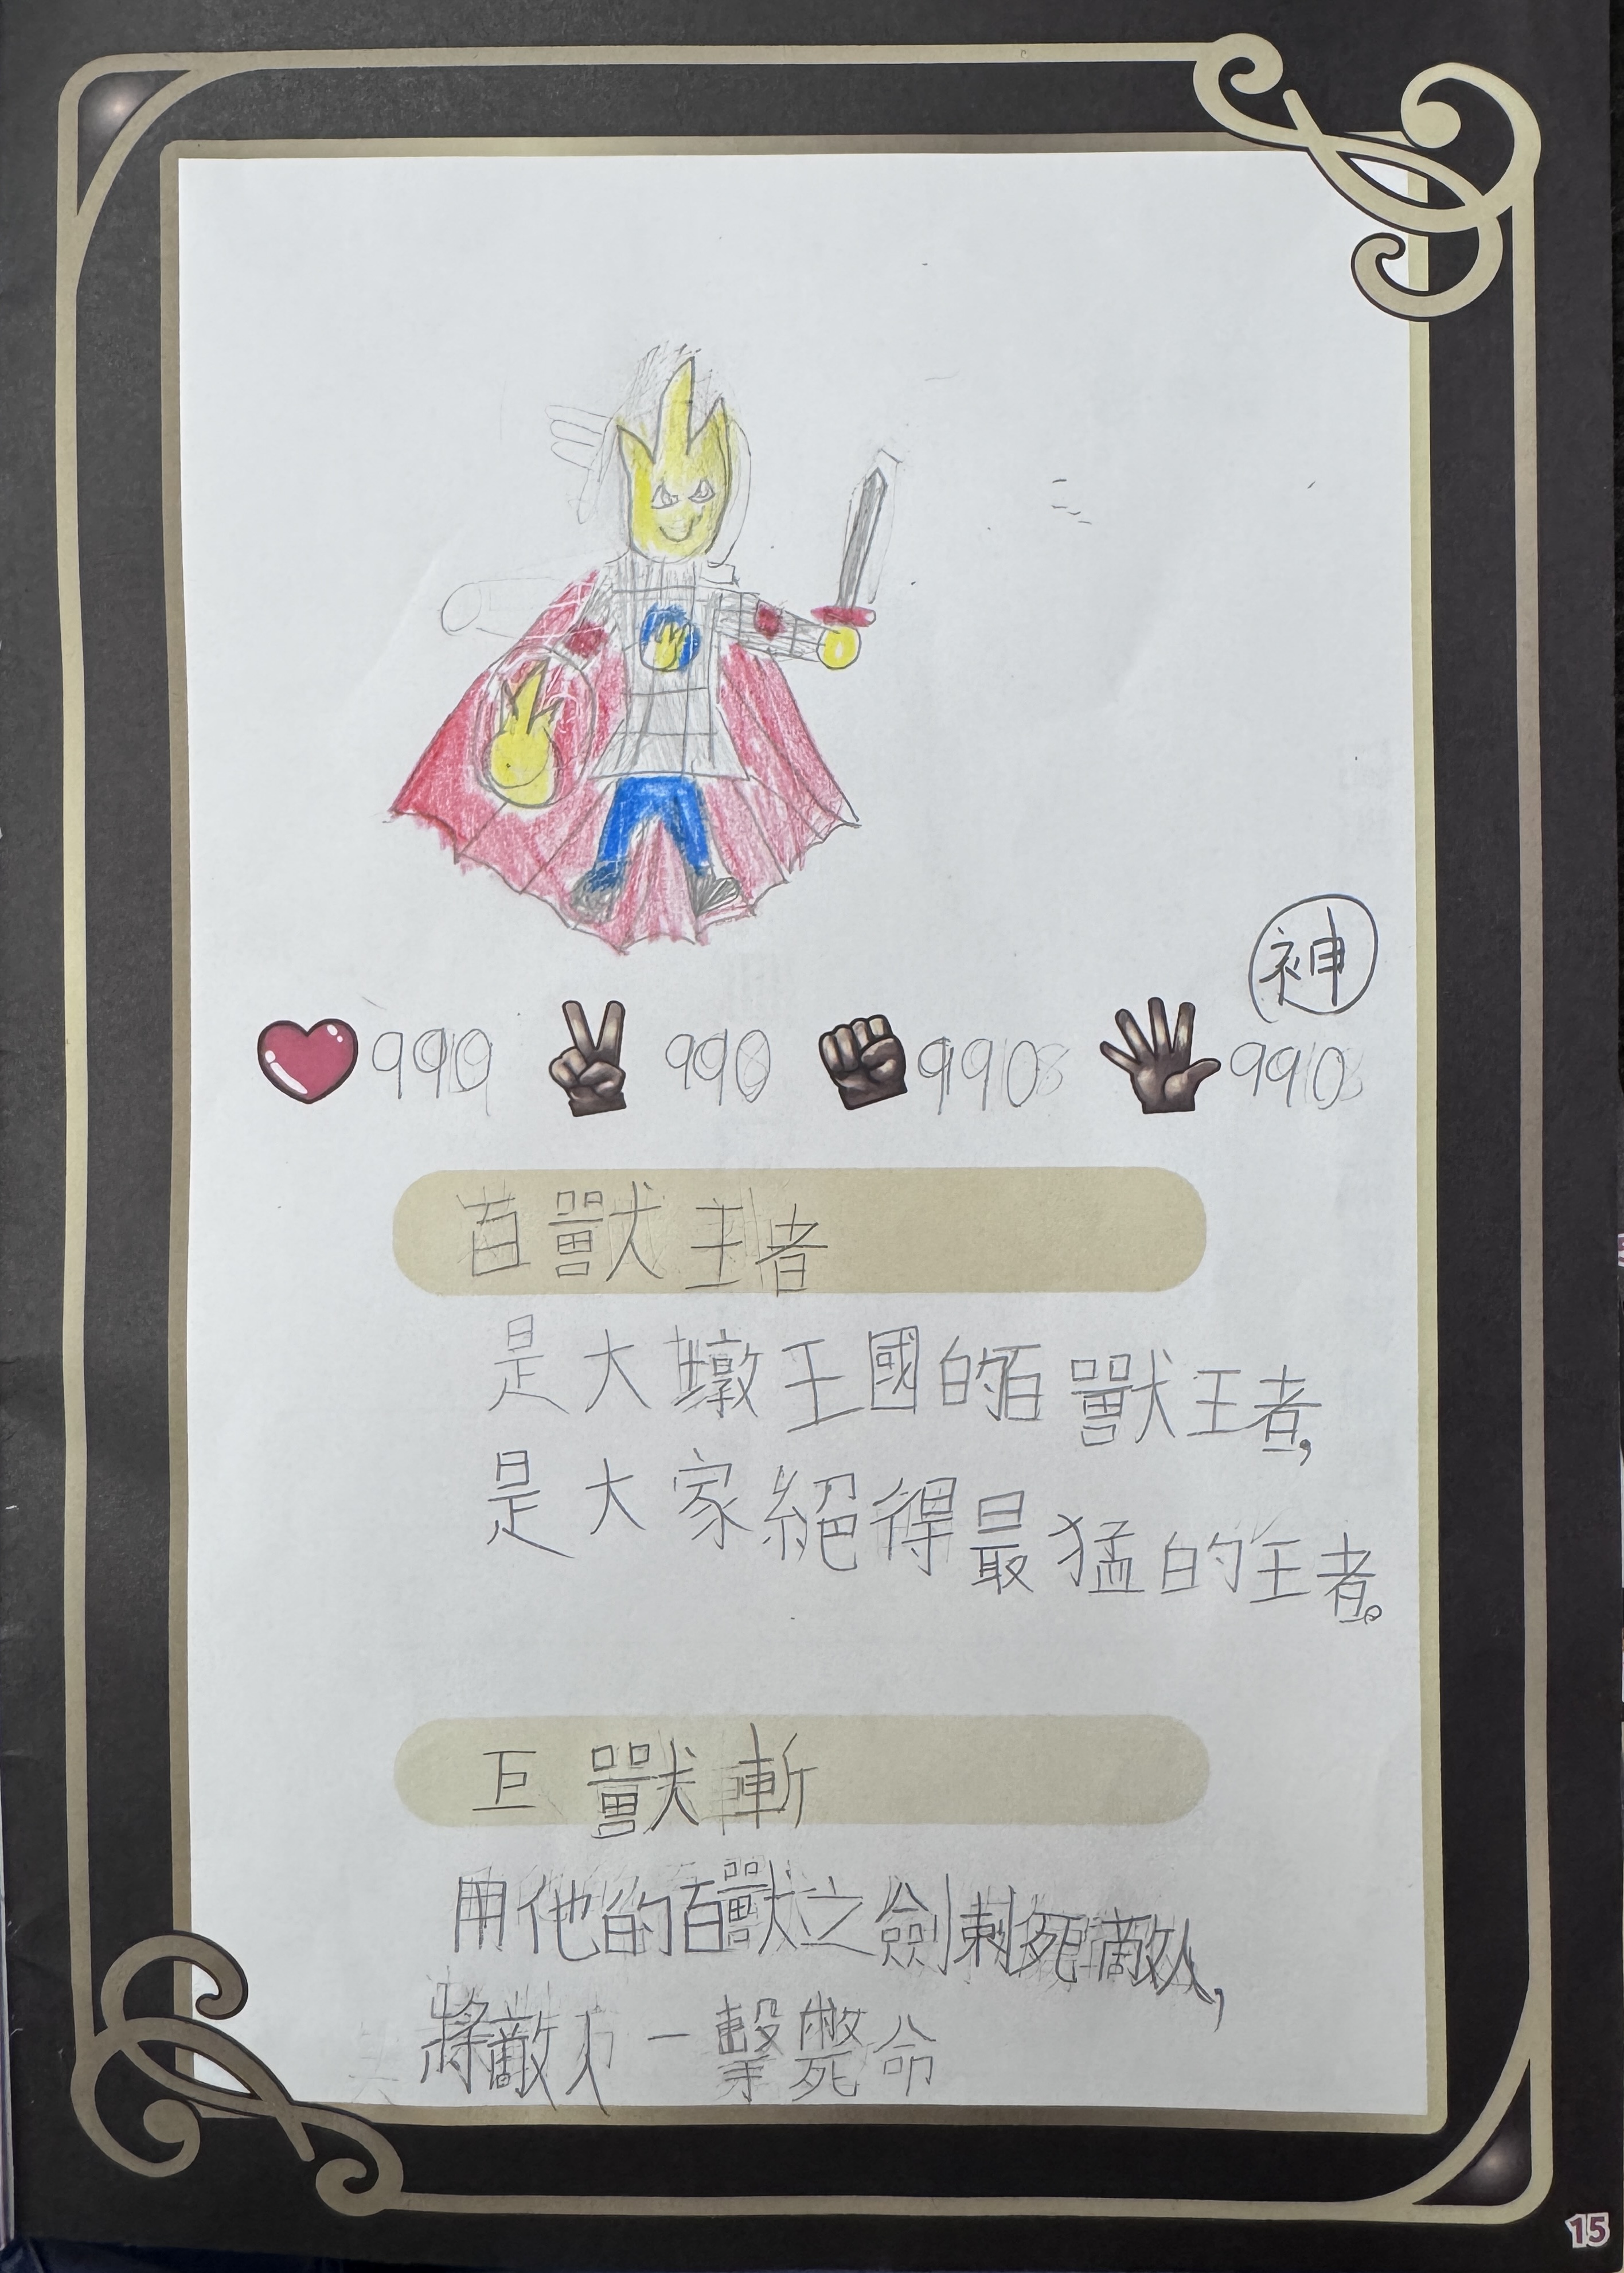 神
990 990 990 990
百獸王者
是大墩王國的百獸王者,
是大家絕得最猛的王者。
巨獸斬
用他的百獸之劍刺死敵人,
將敵人一擊斃命
15